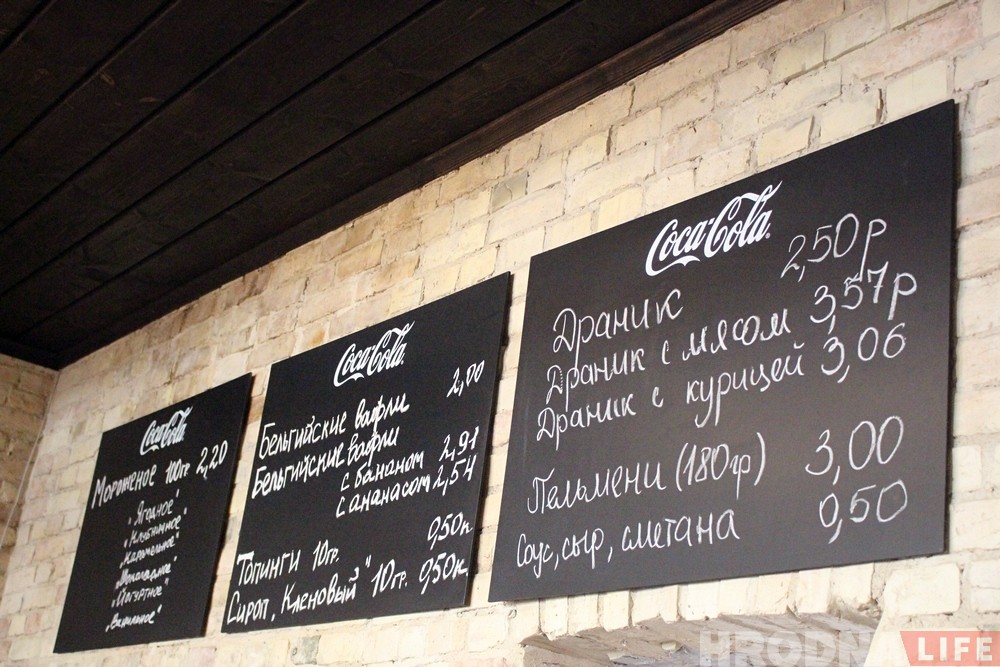 Coca-Cola
Мороженое 100гр. 2,20
"Ягодное"
"Клубничное"
"Карамельное"
"Шоколадное"
"Йогуртное"
"Ванильное"
Coca-Cola
2,00
Бельгийские вафли
Бельгийские вафли
с бананом 2,91
с ананасом 2,54
Топинги 10гр. 0,50к
Сироп "Кленовый" 10гр. 0,50к
Coca-Cola
Драник 2,50р
Драник с мясом 3,57р
Драник с курицей 3,06
Пельмени (180гр) 3,00
Соус, сыр, сметана 0,50
HRODNA LIFE